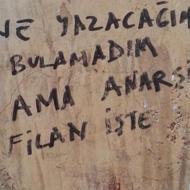 NE YAZACAĞIM
BULAMADIM
AMA ANARŞİ
FİLAN İŞTE